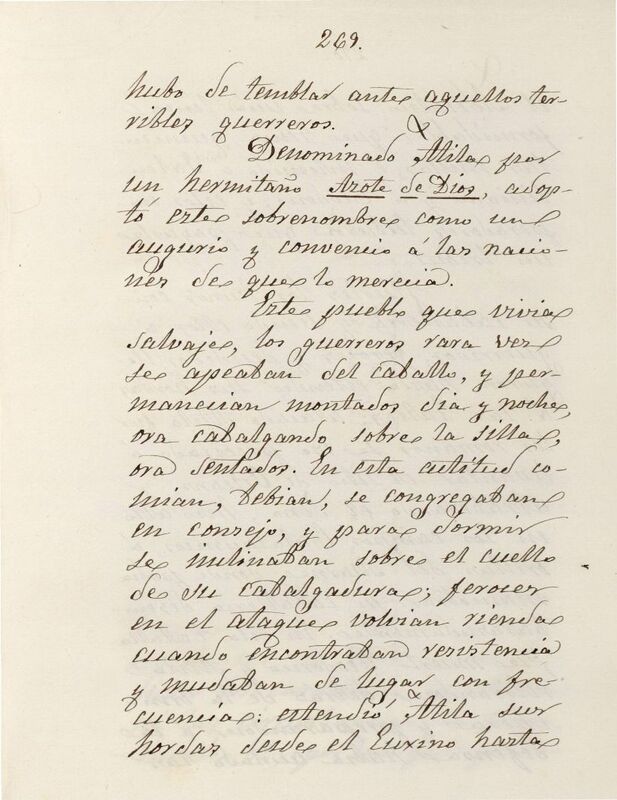 269.
hubo de temblar ante aquellos ter-
ribles guerreros.
Denominado Atila por
un hermitaño Azote de Dios, adop-
tó este sobrenombre como un
augurio y convenció á las nacio-
nes de que lo merecia.
Este pueblo que vivia
salvaje, los guerreros rara vez
se apeaban del caballo, y per-
manecian montados dia y noche,
ora cabalgando sobre la silla,
ora sentados. En esta actitud co-
mian, bebian, se congregaban
en consejo, y para dormir
se inclinaban sobre el cuello
de su cabalgadura; feroces
en el ataque volvian rienda
cuando encontraban resistencia
y mudaban de lugar con fre-
cuencia: estendió Atila sus
hordas desde el Euxino hasta